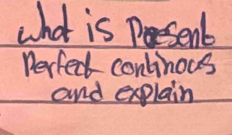 what is Present
Perfect continous
and explain